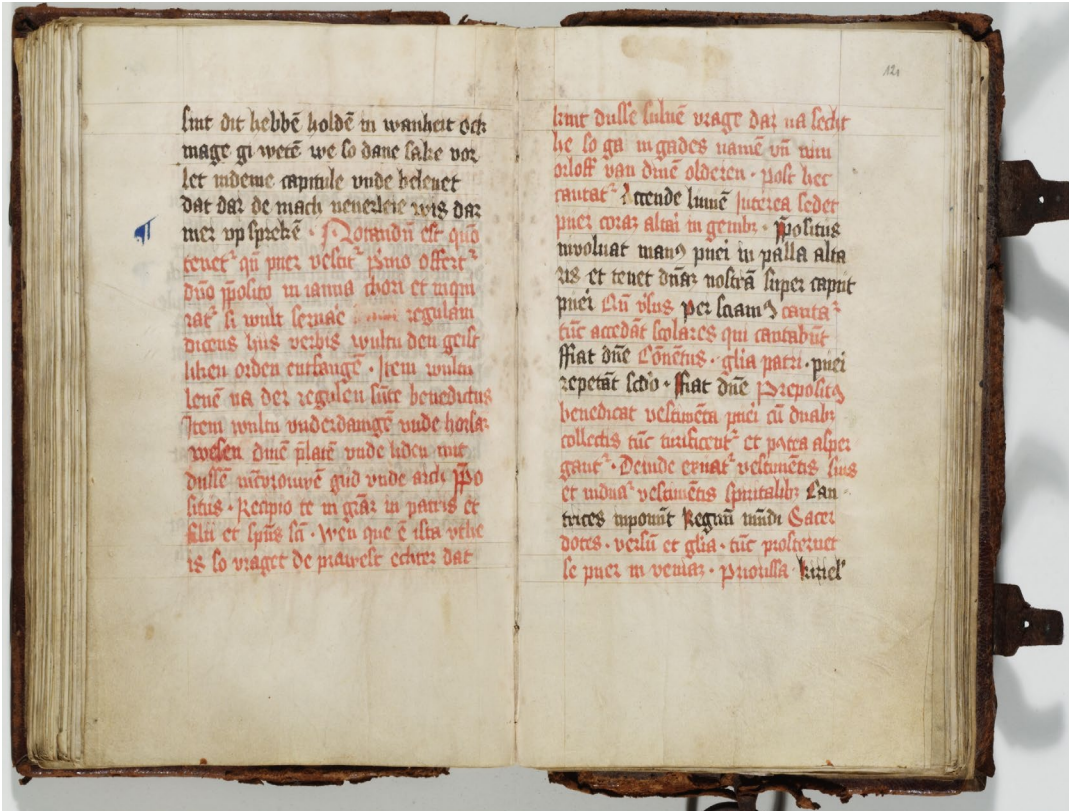 sint dit hebbē holdē in wanheit ock
mage gi wetē we so dane sake vor
let indeme capittule vnde beleuet
dat dar de mach neuerleie wis dar
mer vp sprekē · Notandū est quō
tenet᷑ qn̄ puer vestit᷑ p̄mo offert᷑
dn̄o p̄posito in ianua chori et inqui
rat᷑ si wult seruāe regulam
dicens hiis verbis wultu den geist
liken orden entfangē · Item wultu
leuē na der regulen sūte benedictus
Item wultu vnderdanigē vnde horsa-
wesen dinē p̄latē vnde liden mit
dussē mēvrouwē gud vnde arch P̄po
situs · Recipio te in grāz in patris et
filii et sp̄us sc̄i · Wen que ē ista
is so vraget de prawest echter dat
kint dusse suluē vrage dar na secht
he so ga in gades namē vn̄ nim
orloff van dinē olderen · post hec
cantat᷑ Accende lumē Interea sedet
puer coraz altai in genibꝫ · P̄positus
inuoluat manꝯ puei in palla alta
ris et tenet dn̄az nostrā super caput
puei Cū vl̄us Per sciamꝯ canta᷑
tūc accedāt scolares qui cantabūt
Fiat dn̄e Cōuētus · gl̄ia patri · puei
repetāt scd̄o · Fiat dn̄e Prepositꝯ
benedicat vestimēta puei cū duabꝫ
collectis tūc turificent᷑ et p̄tea asper
gant᷑ · Deinde exuat᷑ vestimētis suis
et indua᷑ vestimētis spiritalibꝫ Can-
trices inponūt Regnū mūdi Sacer
dotes · versū et gl̄ia · tūc prosternet
se puer in veniaz · Priorissa kiriel᷑
121